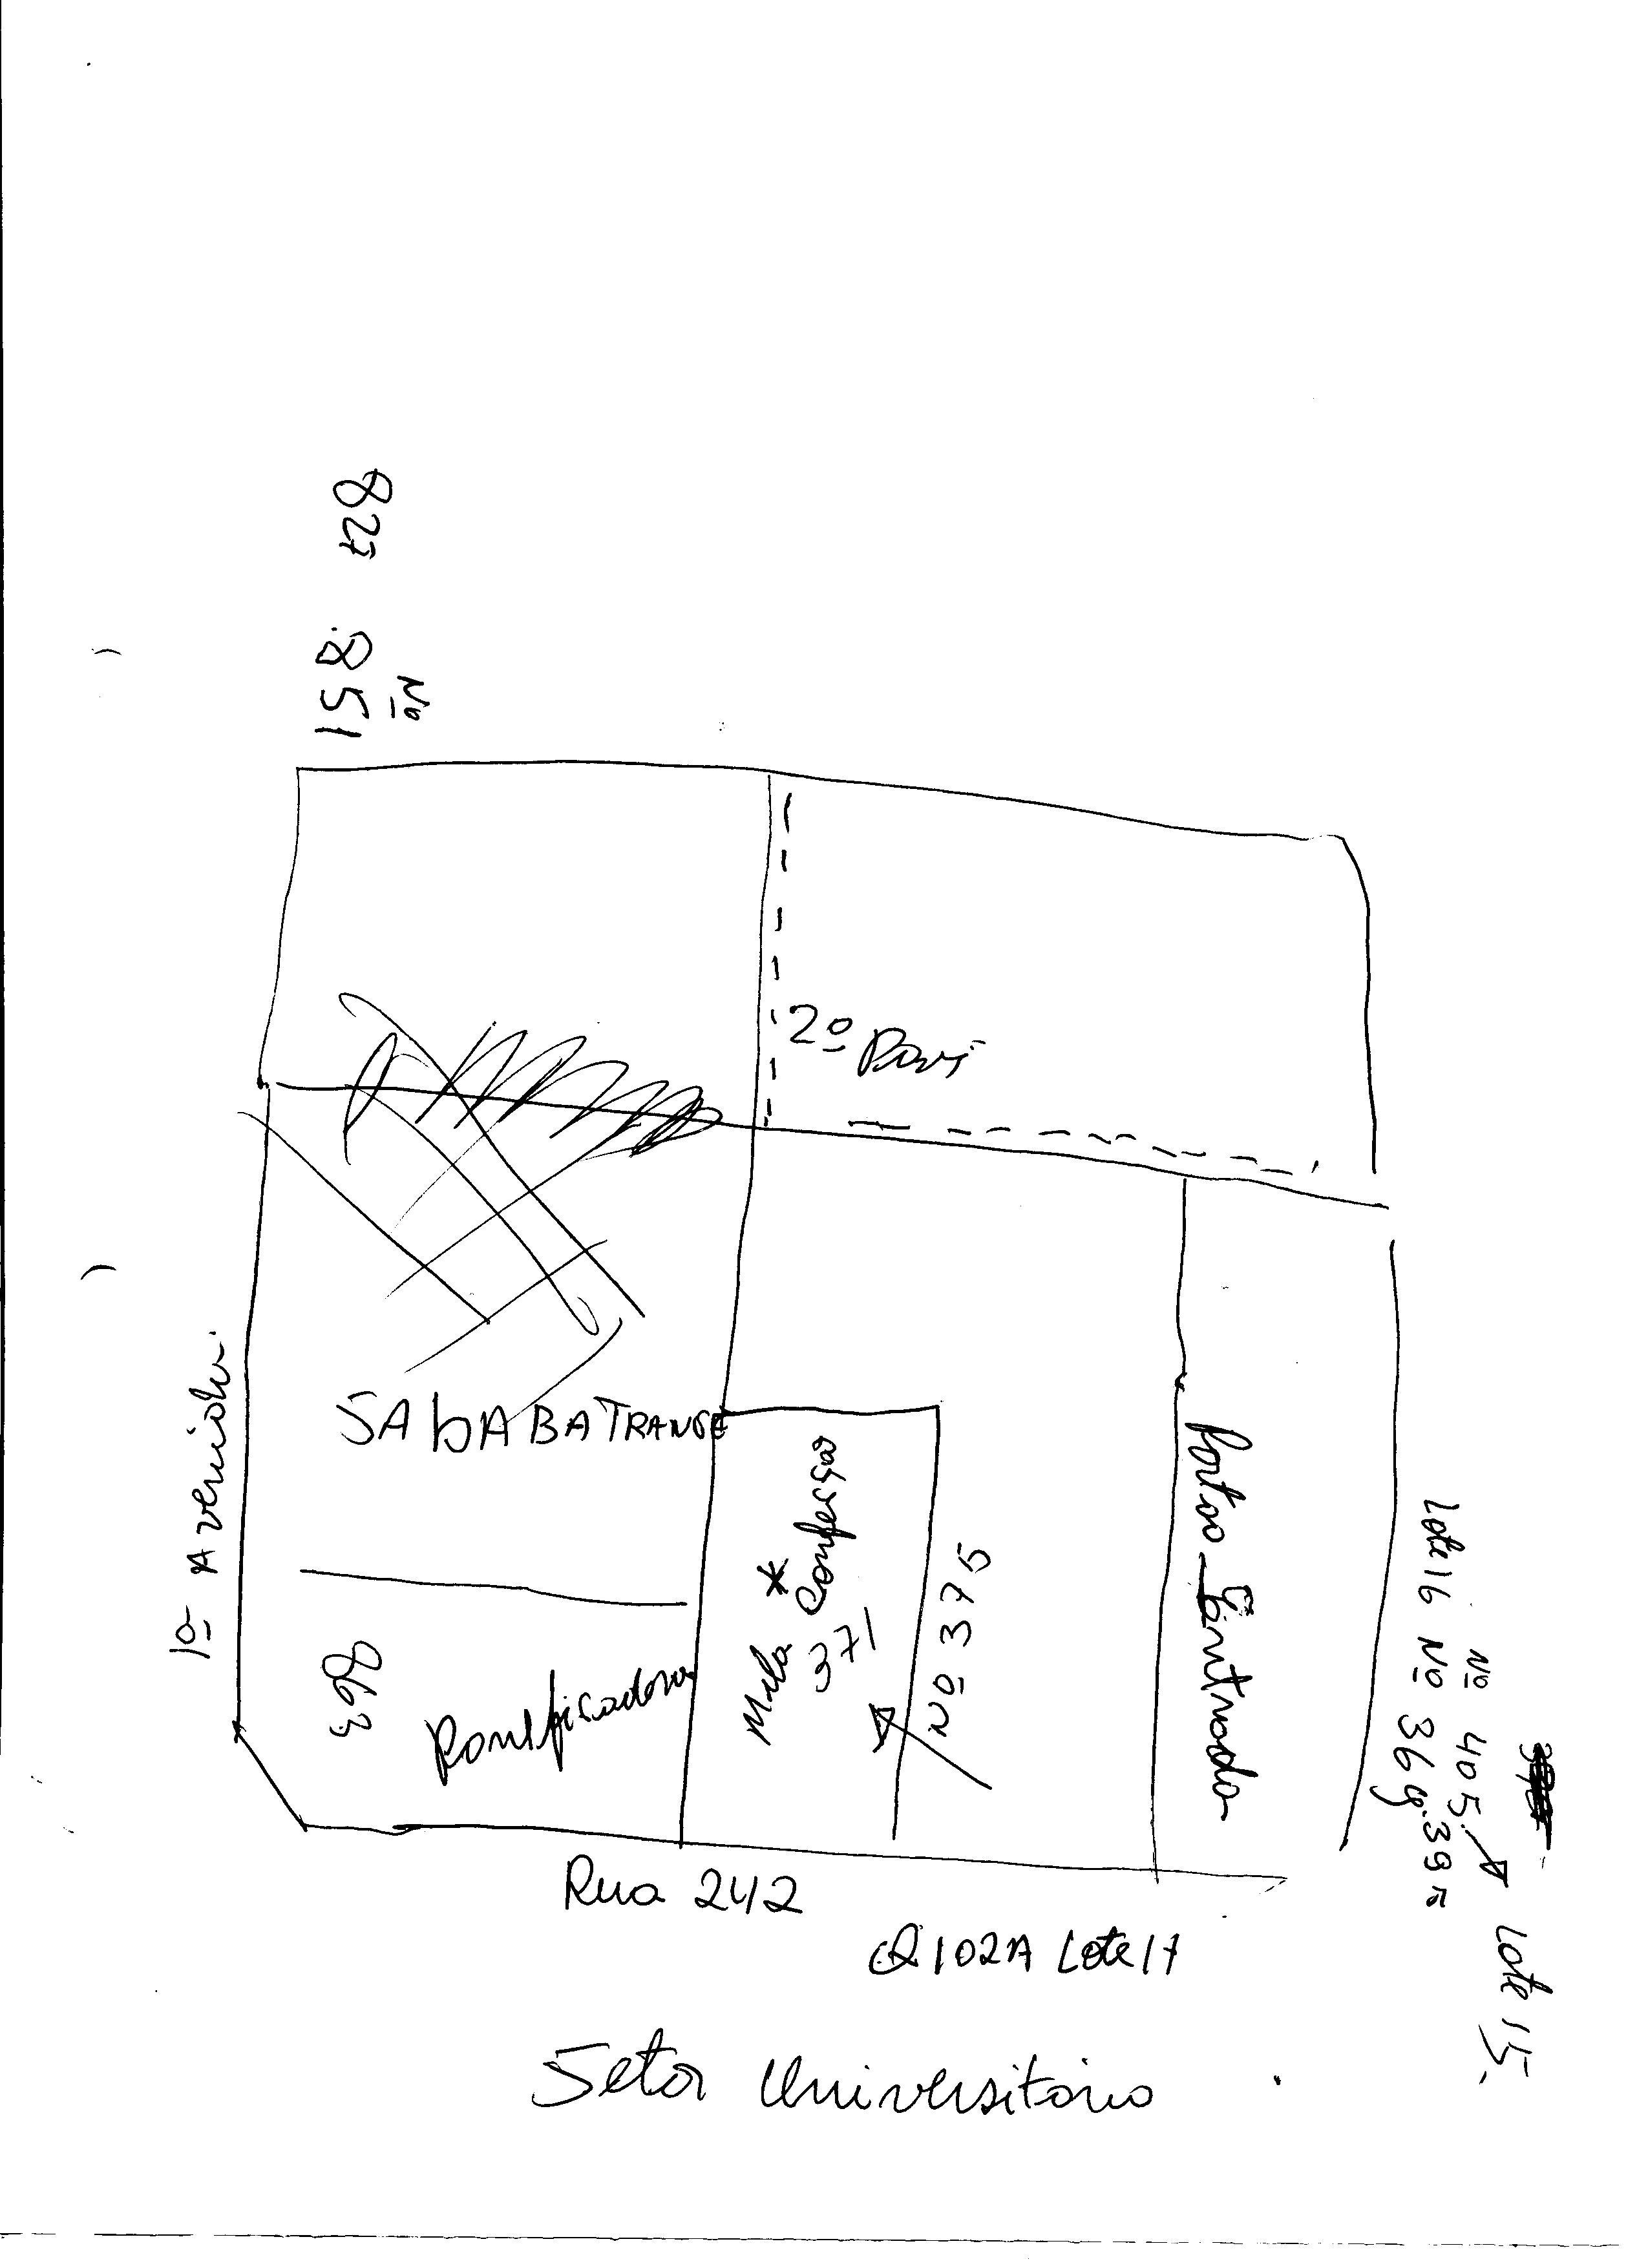 827
851
Nº
2º Pavi
1ª Avenida
SABABATRANSE
863
Panificadora
Mila * Confecção
371
Nº 375
Portão Entrada
Lote 16 Nº 369.
Nº 405
Lote 15
Rua 242
Q 102A Lote 17
Setor Universitário